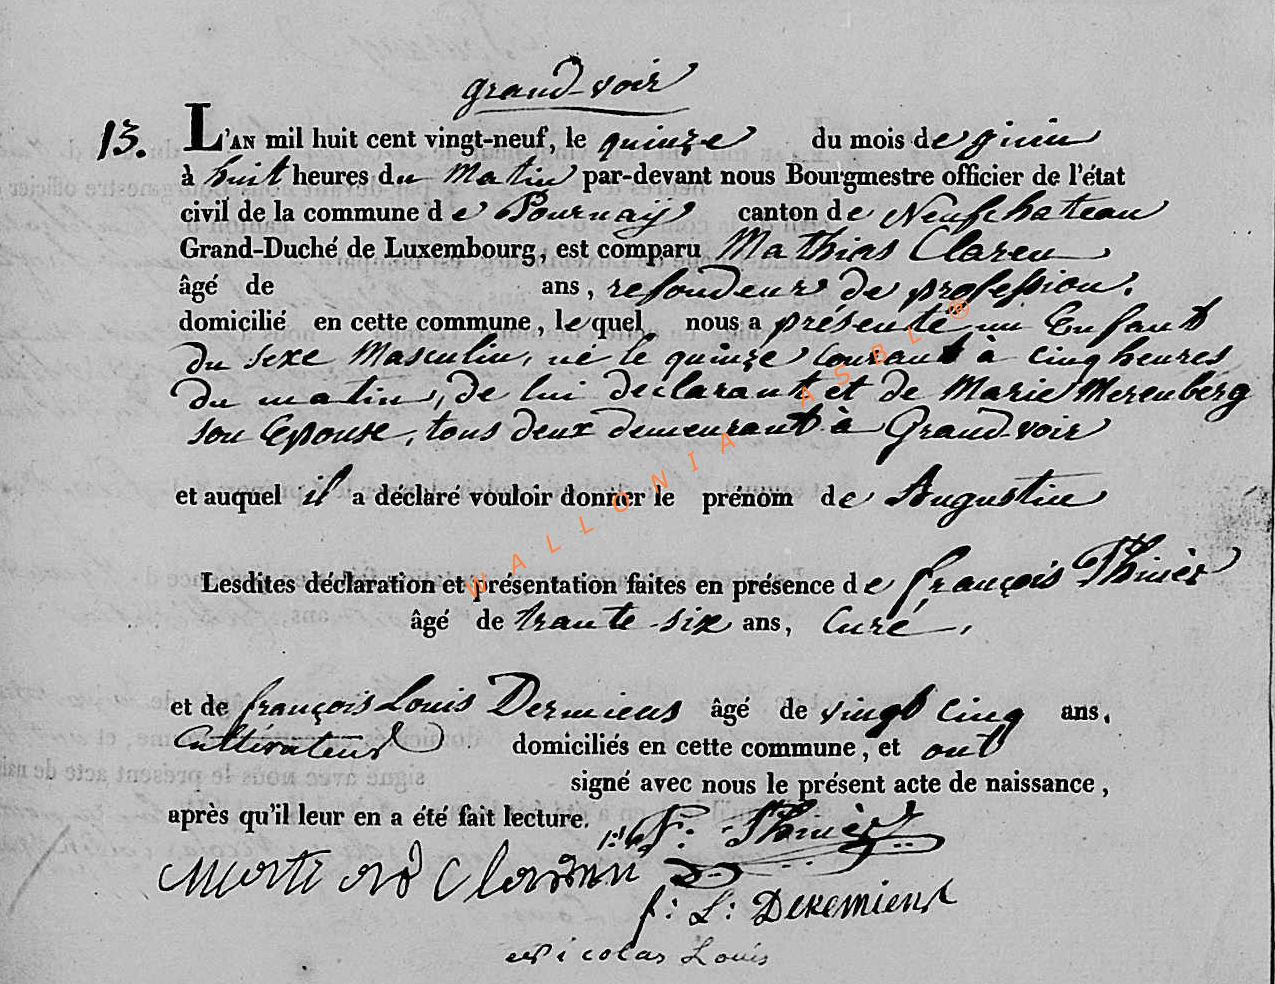 grand-voir
13. L'AN mil huit cent vingt-neuf, le quinze du mois de juin
à huit heures du Matin par-devant nous Bourgmestre officier de l'état
civil de la commune de Tournay canton de Neufchateau
Grand-Duché de Luxembourg, est comparu Mathias Claren
âgé de ans, refondeur de profession.
domicilié en cette commune, lequel nous a présenté un Enfant
du sexe Masculin, né le quinze courant à cinq heures
du matin, de lui declarant et de Marie Merenberg
son Epouse, tous deux demeurant à Grand-voir
et auquel il a déclaré vouloir donner le prénom de Augustin
Lesdites déclaration et présentation faites en présence de françois Thiner
âgé de trante-six ans, Curé,
et de françois Louis Dermiens âgé de vingt cinq ans.
Cultivateur domiciliés en cette commune, et ont
signé avec nous le présent acte de naissance,
après qu'il leur en a été fait lecture.
F: Thiner
f: L: Deremiens
Nicolas Louis
WALLONIA ASBL ®